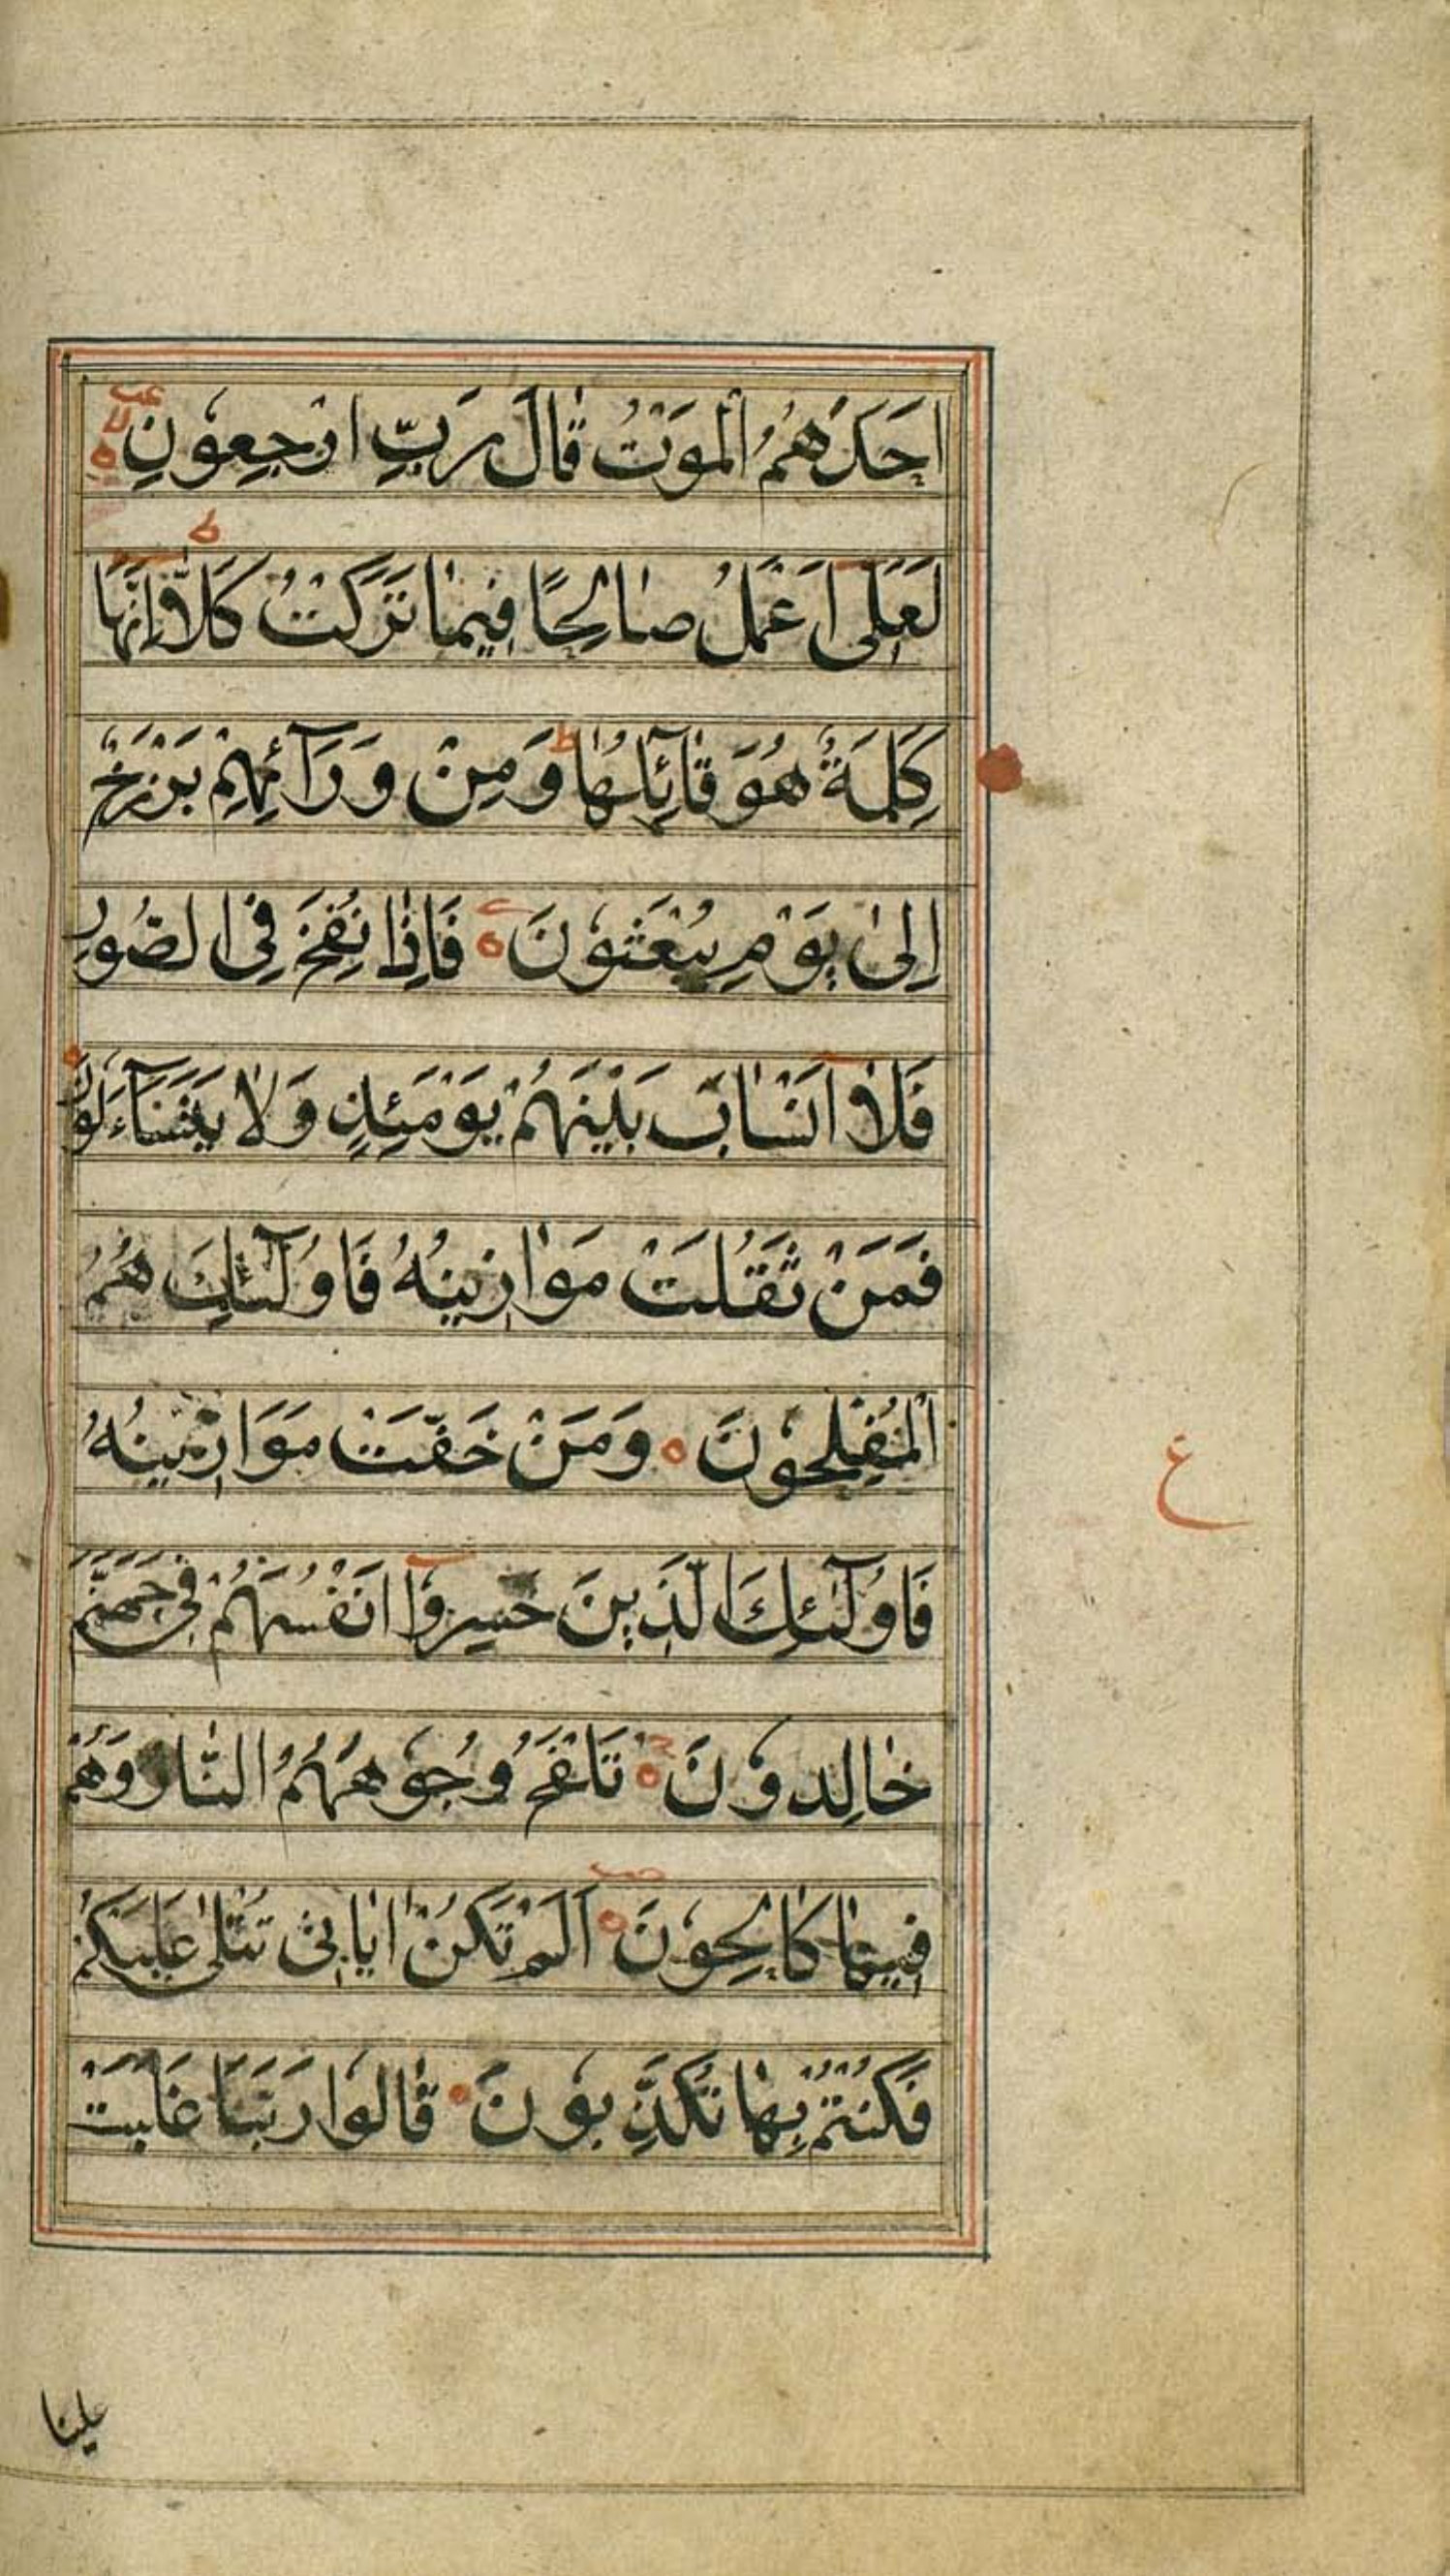 اَحَدَهُمُ الْمَوْتُ قَالَ رَبِّ ارْجِعُونِ
لَعَلِّىٓ اَعْمَلُ صَالِحًا فِيمَا تَرَكْتُ كَلَّآ اِنَّهَا
كَلِمَةٌ هُوَ قَآئِلُهَا ط وَمِنْ وَرَآئِهِمْ بَرْزَخٌ
اِلٰى يَوْمِ يُبْعَثُونَ فَاِذَا نُفِخَ فِى الصُّورِ
فَلَآ اَنْسَابَ بَيْنَهُمْ يَوْمَئِذٍ وَلَا يَتَسَآءَلُونَ
فَمَنْ ثَقُلَتْ مَوَازِينُهُ فَاُولٰٓئِكَ هُمُ
الْمُفْلِحُونَ وَمَنْ خَفَّتْ مَوَازِينُهُ
فَاُولٰٓئِكَ الَّذِينَ خَسِرُوٓا اَنْفُسَهُمْ فِى جَهَنَّمَ
خَالِدُونَ تَلْفَحُ وُجُوهَهُمُ النَّارُ وَهُمْ
فِيهَا كَالِحُونَ اَلَمْ تَكُنْ اٰيَاتِى تُتْلٰى عَلَيْكُمْ
فَكُنْتُمْ بِهَا تُكَذِّبُونَ قَالُوا رَبَّنَا غَلَبَتْ
ع
علينا